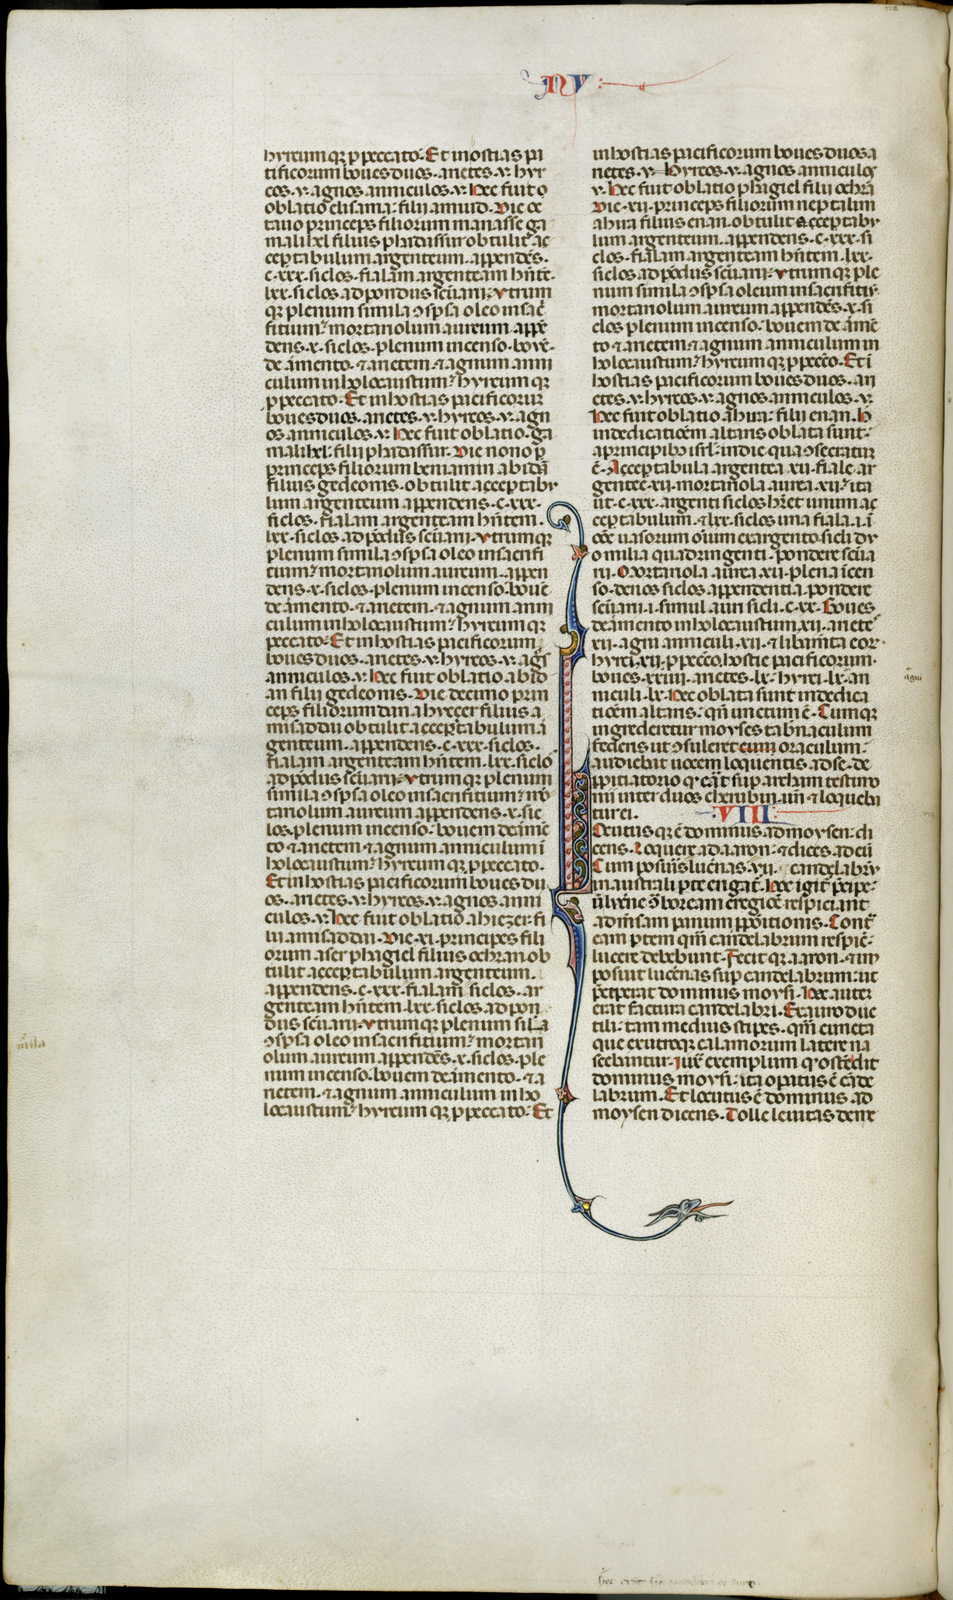 NV
hyrcumq; p peccato. Et in ostias pa
cificorum boues duos. arietes .v. hyr
cos .v. agnos anniculos .v. hec fuit o
oblatio elisama filii amiud. Die oc
tauo princeps filiorum manasse ga
malihel filius phadassur obtulit ac
ceptabulum argenteum appendēs.
c.xxx. siclos. fialam argenteam hñtē.
lxx. siclos ad pondus scūarii. vtrum
q; plenum simila ɔspsa oleo in sacri
fitium. mortariolum aureum appē
dens .x. siclos. plenum incenso. bouē.
de armento. & arietem. & agnum anni
culum in holocaustum. hyrcumq;
p peccato. Et in hostias pacificorum
boues duos. arietes .v. hyrcos .v. agn
os anniculos .v. hec fuit oblatio. ga
malihel filii phadassur. Die nono p
princeps filiorum beniamin abidā
filius gedeonis. obtulit acceptabu
lum argenteum appendens. c.xxx.
siclos. fialam argenteam hñtem.
lxx. siclos ad pōdus scūarii. vtrumq;
plenum simila ɔspsa oleo in sacrifi
tium. mortariolum aureum. appen
dens .x. siclos. plenum incenso. bouē
de armento. & arietem. & agnum anni
culum in holocaustum. hyrcumq;
peccato. Et in hostias pacificorum
boues duos. arietes .v. hyrcos .v. agn
anniculos .v. hec fuit oblatio abid
an filii gedeonis. Die decimo prin
ceps filiorum dan ahyecer filius a
misaddai obtulit acceptabulum a
genteum. appendens. c.xxx. siclos.
fialam argenteam hñtem. lxx. siclo
ad pōdus scūarii. vtrumq; plenum
simila ɔspsa oleo in sacrifitium. mor
tariolum aureum appendens .x. sic
los. plenum incenso. bouem de armē
to & arietem & agnum anniculum ī
holocaustum. hyrcumq; p peccato.
Et in hostias pacificorum boues du
os. arietes .v. hyrcos .v. agnos anni
culos .v. hec fuit oblatio ahiezer fi
lii amisaddai. Die .xi. principes fili
orum aser phagiel filius ochran ob
tulit acceptabulum argenteum.
appendens. c.xxx. fialam siclos. ar
genteam hñtem. lxx. siclos ad pon
dus scūarii. vtrumq; plenum sila
ɔspsa oleo in sacrifitium. mortari
olum aureum appendēs .x. siclos. ple
num incenso. bouem de armento. & a
rietem. & agnum anniculum in ho
locaustum. hyrcumq; p peccato. Et
in hostias pacificorum boues duos a
rietes .v. hyrcos .v. agnos anniculos
.v. hec fuit oblatio phagiel filii ochrā
Die .xii. princeps filiorum neptalim
ahira filius enan. obtulit acceptabu
lum argenteum. appendens. c.xxx. si
clos. fialam argenteam hñtem. lxx.
siclos ad pōdus scūarii. vtrumq; ple
num simila ɔspsa oleum in sacrifitiū.
mortariolum aureum appendēs .x. si
clos plenum incenso. bouem de armē
to & arietem & agnum anniculum in
holocaustum. hyrcumq; p peccō. Et ī
hostias pacificorum boues duos. ari
etes .v. hyrcos .v. agnos anniculos .v.
hec fuit oblatio ahira filii enan. h
in dedicationem altaris oblata sunt.
a principibus isrl. in die qua ɔsecratum
ē. Acceptabula argentea .xii. fiale ar
gentee .xii. mortariola aurea .xii. ita
ut .c.xxx. argenti siclos hret unum ac
ceptabulum. & lxx. siclos una fiala .i. ī
ōe uasorum oīum ex argento sicli du
o milia quadringenti. pondere scūa
rii. Mortariola aurea .xii. plena incen
so. denos siclos appendentia pondere
scūarii .i. simul auri sicli .c.xx. Boues
de armento in holocaustum .xii. ariete
.xii. agni anniculi .xii. & libamīta eor
hyrci .xii. p peccō. hostie pacificorum.
boues .xxiiii. arietes .lx. hyrci .lx. an
niculi .lx. hec oblata sunt in dedica
tione altaris. qñ unctum ē. Cumq;
ingrederetur moyses tabnaculum
federis ut ɔsuleret cum oraculum.
audiebat uocem loquentis ad se. de
ppitiatorio q erat sup archam testimo
nii inter duos cherubin. uñ & loqueba
tur ei.
VIII
Locutusq; ē dominus ad moysen. di
cens. Loquere ad aaron. & dices ad eū
Cum posuis lucrnas .vii. candelabru
in australi pte erigat. hec igit pcipe.
ut lucrne ɔ boream e regione respiciant
ad msam panum ppositionis. Contra
eam ptem qm candelabrum respic.
lucere debebunt. Fecitq; aaron. & im
posuit lucernas sup candelabrum. ut
pceperat dominus moysi. hec autem
erat factura candelabri. Ex auro duc
tili. tam medius stipes. qm cuncta
que ex utroq; calamorum latere na
scebantur. iux exemplum q ostendit
dominus moysi. ita opatus ē cande
labrum. Et locutus ē dominus ad
moysen dicens. Tolle leuitas de me
agni
mila